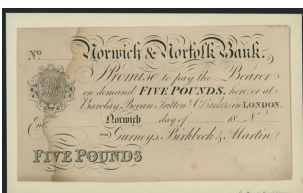 No. Norwich & Norfolk Bank.
I Promise to pay the Bearer
on demand FIVE POUNDS, here, or at
Barclay, Bevan, Tritton & Co. Bankers in LONDON.
Norwich day of 18
Entd.
For Gurneys, Birkbeck & Martin
FIVE POUNDS